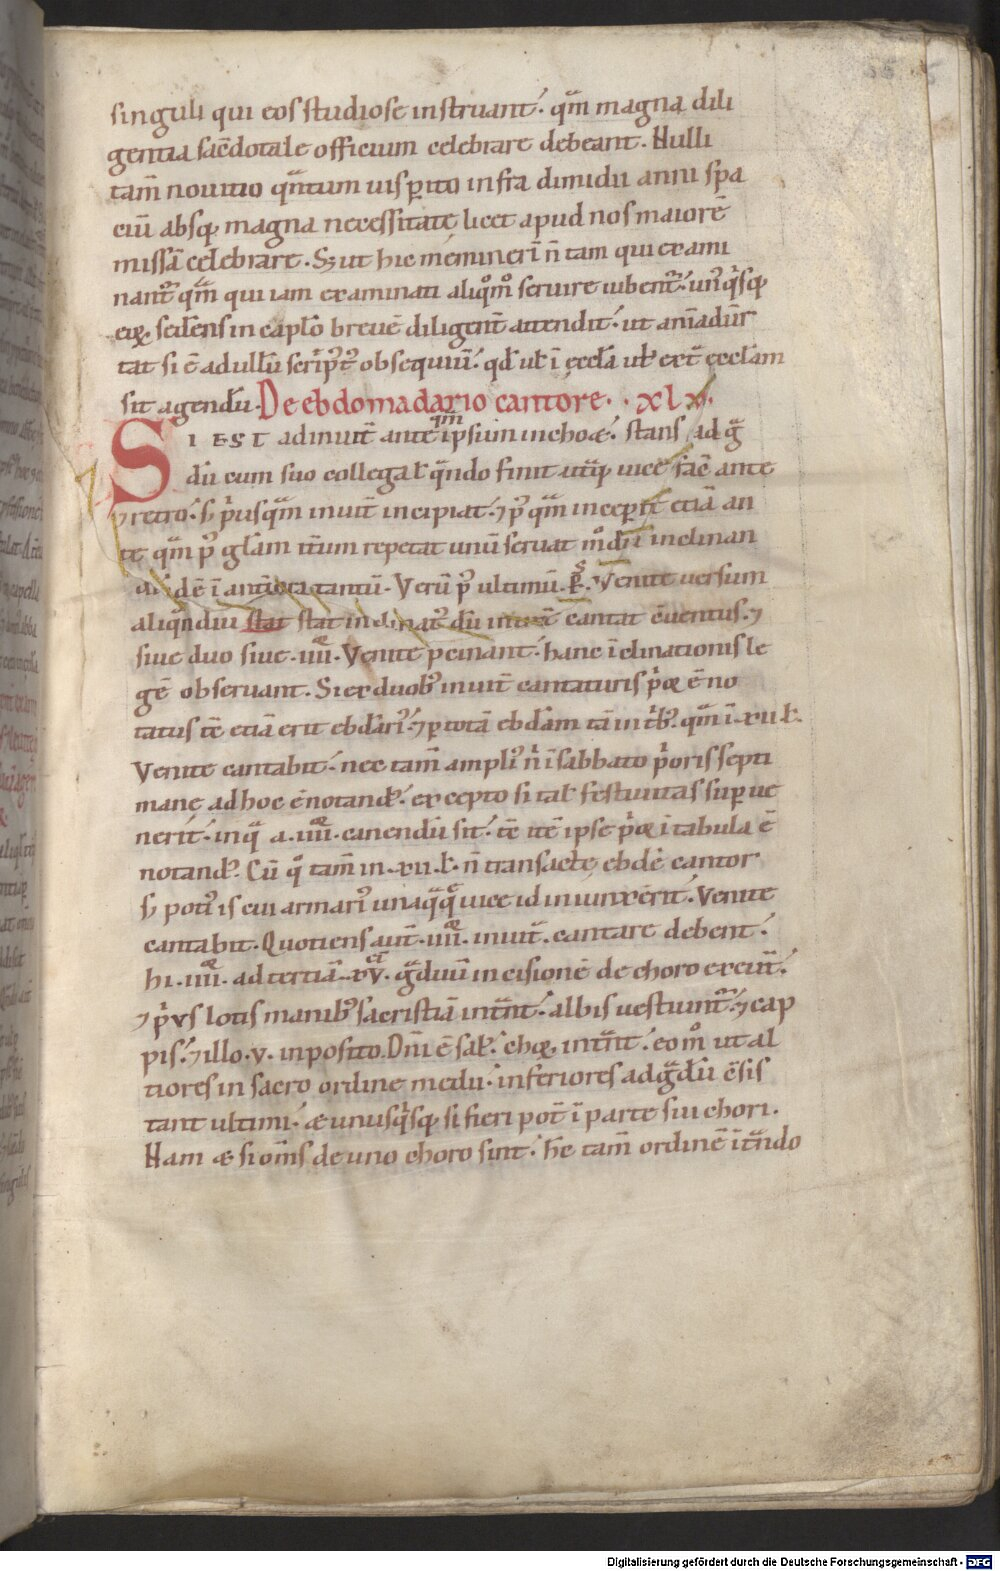 singuli qui eos studiose instruant. qm̄ magna dili
gentia sac̄dotale officium celebrare debeant. Nulli
tam̄ nouitio qn̄tum uis ꝑito infra dimidii anni spa
ciū absqꝫ magna necessitate licet apud nos maiorē
missā celebrare. Sꝫ ut hic meminerī n̄ tam qui exami
nant᷒ qm̄ qui iam examinati aliqͦmͦ seruire iubent᷒. un᷒qͥsqꝫ
sedens in capl̄o breuē diligent̄ attendit. ut aīaduer
tat si ē ad ullū obsequiū. qd̄ ł ī ęccl̄a ł ext̄ ęccl̄am
sit agendū. De ebdomadario cantore. xlx.
SI EST ad inuit̄ ante qm̄ ipsum inchoæ. stans ad gͣ
dū cum suo collega ł qn̄do finit utqꝫ uice fac̄ ante
⁊ retro. sꝫ pͥusqͣm inuit̄ incipiat. ⁊ p᷒ qͣm inceꝑit etiā an
te qͣm p᷒ gl̄am it̄um repetat unū seruat mͦdū inclinan
di. idē ī tantū. Verū p᷒ ultimū. Venite uersum
aliqͣndiu stat stat inclinat᷒ dū cantat cōuentus. ⁊
siue duo siue .iiii. Venite peinant. hanc īclinationis le
gē obseruant. Si ex duob᷒ inuit̄ cantaturis pͥor ē no
tatus tc̄ etiā erit ebd̄ari᷒. ⁊ ꝑ totā ebdam̄ tā in t̄b᷒. qͣm ī .xii. ł.
Venite cantabit. nec tam̄ ampli᷒ nͥ ī sabbato pͥoris septi
mane ad hoc ē notand᷒. excepto si tal̄ festiuitas suꝑue
nerit. in qͣ a. iiii. canendū sit. tc̄ itē ipse pͥor ī tabula ē
notand᷒. Cū qͦ tam̄ in .xii. ł. n̄ transactę ebd̄ē cantor
sꝫ poti᷒ is cui armari᷒ unaqͣqꝫ uice id iniunxerit. Venite
cantabit. Quotiens aut̄ .iiii. inuit̄. cantare debent.
hi .iiii. ad tertiā .xv. gͣduū incisionē de choro exeūt.
⁊ pͥus lotis manib᷒ sacristiā intͣnt. albis uestiunt᷒. ⁊ cap
pis. ⁊ illo .v. inposito. Dn̄i ē sal᷒. chorū intͣnt. eo mͦ ut al
tiores in sacro ordine medii. inferiores ad gͣdū cōsis
tant ultimi. æ unusqͥsqꝫ si fieri pot̄ ī parte sui chori.
Nam æ si om̄s de uno choro sint. hc̄ tam̄ ordinē ītͣndo
Digitalisierung gefördert durch die Deutsche Forschungsgemeinschaft - DFG